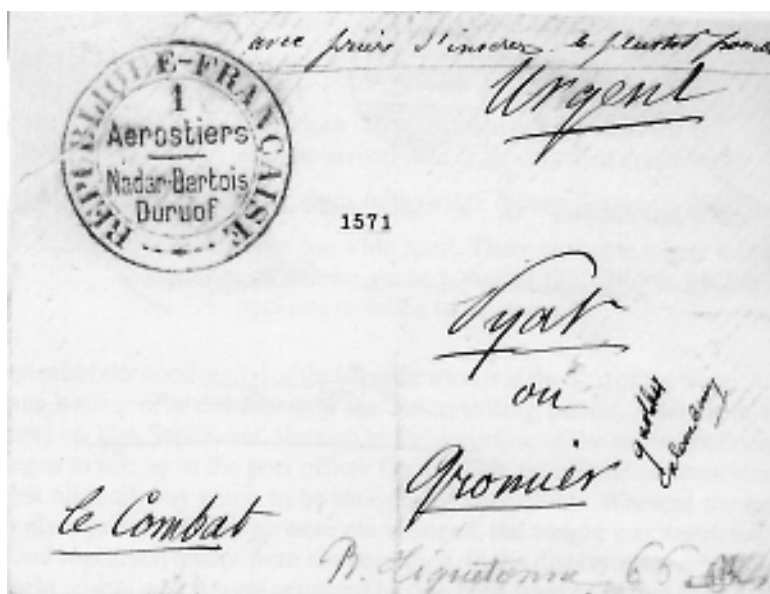 avec prière d'insérer le plustot
Urgent
RÉPUBLIQUE-FRANÇAISE
1
Aerostiers
Nadar-Dartois
Duruof
1571
Pyat
ou
Gromier
Le Combat
R. Tiquetonne 65